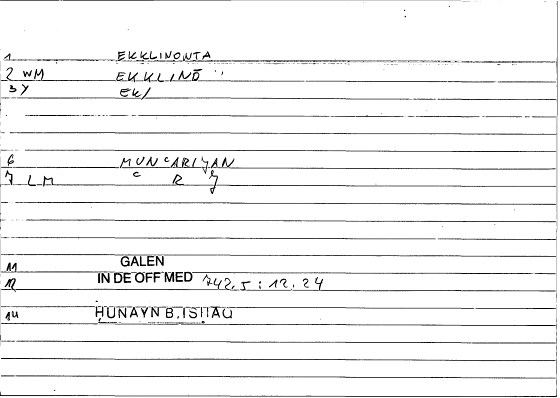 1 EKKLINONTA
2 WM EKKLINŌ "
3 Y EK/
6 MUNCARIJAN
7 LM C R J
11 GALEN
12 IN DE OFF MED 742.5 : 12.24
14 HUNAYN B. ISHAQ